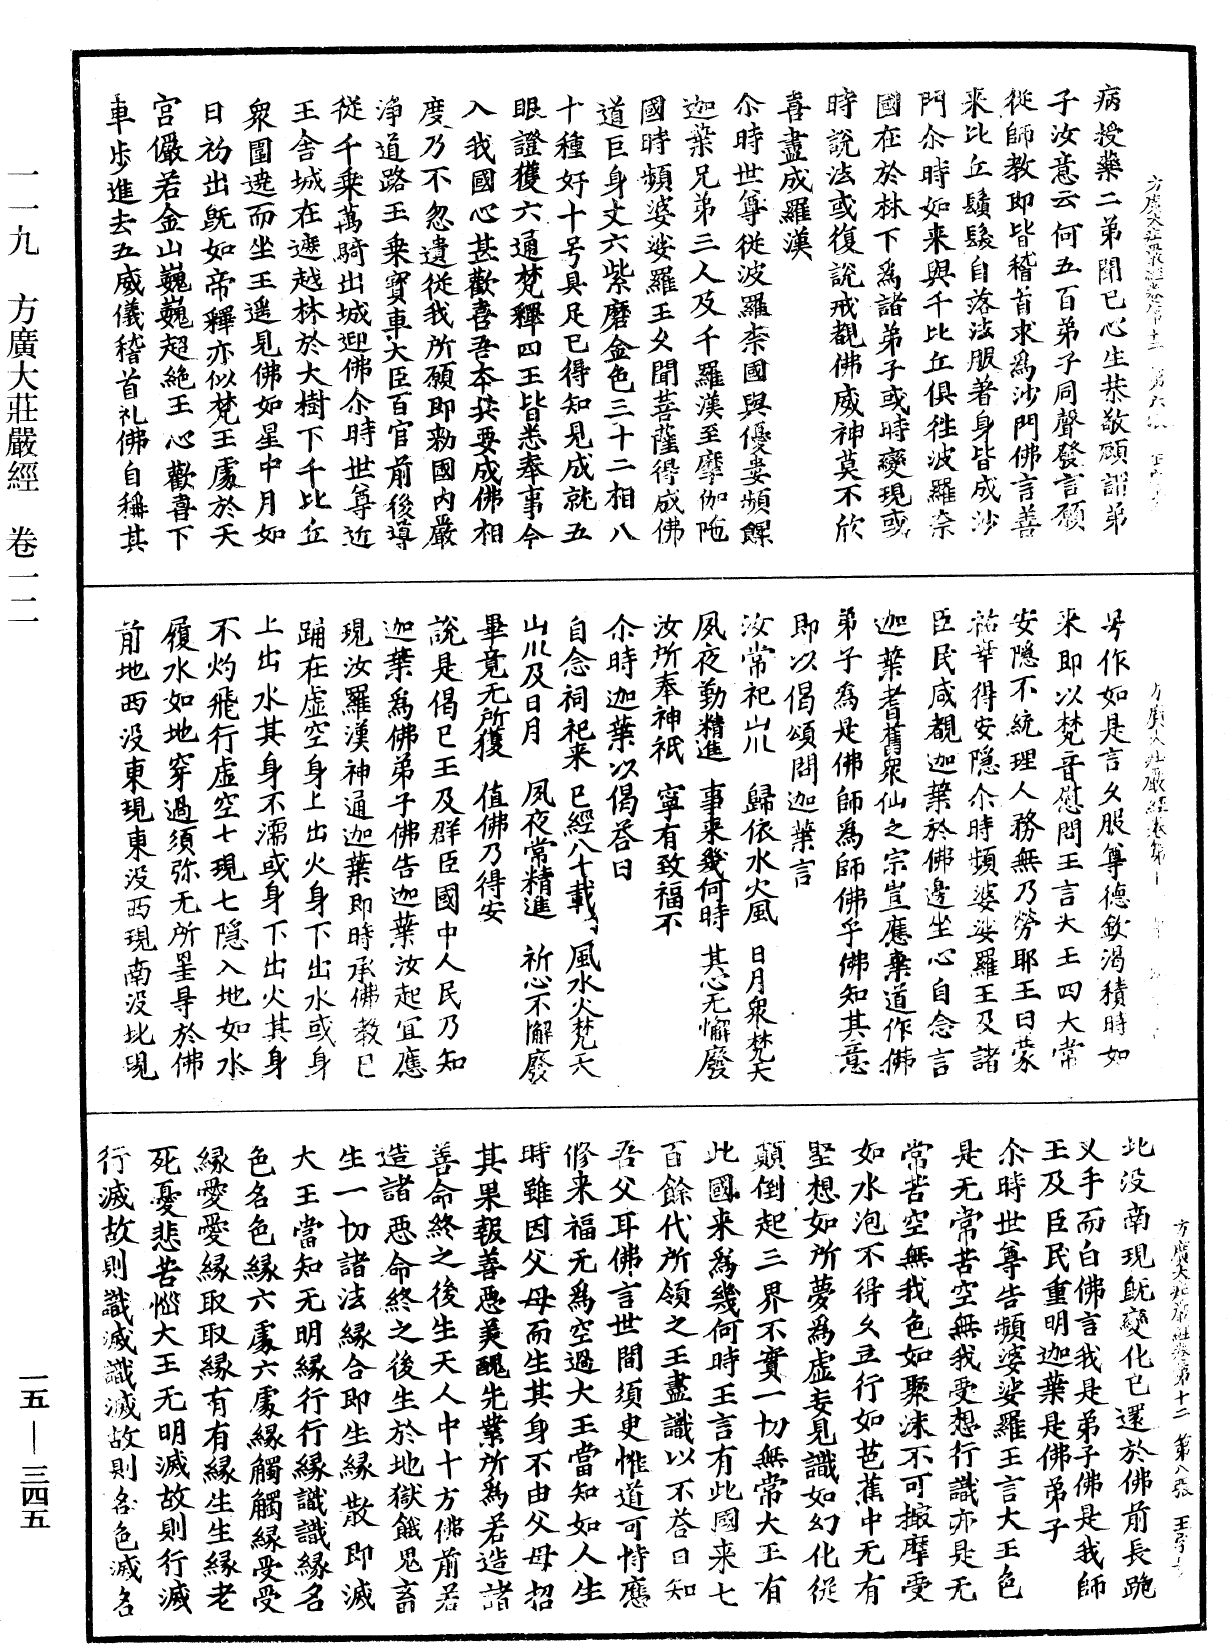 病授藥二弟聞已心生恭敬顧謂弟
子汝意云何五百弟子同聲發言願
從師教即皆稽首求爲沙門佛言善
来比丘鬚髮自落法服著身皆成沙
門尒時如来與千比丘俱往波羅柰
國在於林下爲諸弟子或時變現或
時說法或復說戒覩佛威神莫不欣
喜盡成羅漢
尒時世尊従波羅柰國與優婁頻螺
迦葉兄弟三人及千羅漢至摩伽陁
國時頻婆娑羅王久聞菩薩得成佛
道巨身丈六紫磨金色三十二相八
十種好十号具足已得知見成就五
眼證獲六通梵釋四王皆悉奉事今
入我國心甚歡喜吾本共要成佛相
度乃不忽遺従我所願即勑國内嚴
淨道路王乗寶車大臣百官前後導
従千乗萬騎出城迎佛尒時世尊近
王舍城在遮越林於大樹下千比丘
衆圍遶而坐王遥見佛如星中月如
日初出旣如帝釋亦似梵王處於天
宮儼若金山巍巍超絶王心歡喜下
車歩進去五威儀稽首礼佛自稱其
号作如是言久服尊德欽渴積時如
来即以梵音慰問王言大王四大常
安隱不統理人務無乃勞耶王曰蒙
祐華得安隱尒時頻婆娑羅王及諸
臣民咸覩迦葉於佛邊坐心自念言
迦葉耆舊衆仙之宗豈應棄道作佛
弟子為是佛師為師佛乎佛知其意
即以偈頌問迦葉言
汝常祀山川　歸依水火風　日月衆梵天
夙夜勤精進　事来幾何時　其心无懈廢
汝所奉神祇　寧有致福不
尒時迦葉以偈荅曰
自念祠祀来　已經八十載　風水火梵天
山川及日月　夙夜常精進　祈心不懈廢
畢竟无所獲　值佛乃得安
說是偈已王及群臣國中人民乃知
迦葉爲佛弟子佛告迦葉汝起宜應
現汝羅漢神通迦葉即時承佛教已
踊在虚空身上出火身下出水或身
上出水其身不濡或身下出火其身
不灼飛行虚空七現七隱入地如水
履水如地穿過須弥无所罣㝵於佛
前地西没東現東没西現南没北現
北没南現旣變化已還於佛前長跪
叉手而白佛言我是弟子佛是我師
王及臣民重明迦葉是佛弟子
尒時世尊告頻婆娑羅王言大王色
是无常苦空無我受想行識亦是无
常苦空無我色如聚沫不可撮摩受
如水泡不得久立行如芭蕉中无有
堅想如所夢爲虚妄見識如幻化從
顛倒起三界不實一切無常大王有
此國来爲幾何時王言有此國来七
百餘代所領之王盡識以不荅曰知
吾父耳佛言世間須臾惟道可恃應
修来福无爲空過大王當知如人生
時雖因父母而生其身不由父母招
其果報善惡美醜先業所爲若造諸
善命終之後生天人中十方佛前若
造諸惡命終之後生於地獄餓鬼畜
生一切諸法緣合即生緣散即滅
大王當知无明緣行行緣識識緣名
色名色緣六處六處緣觸觸緣受受
緣愛愛緣取取緣有有緣生生緣老
死憂悲苦惱大王无明滅故則行滅
行滅故則識滅識滅故則名色滅名
方廣大莊嚴經卷第十二　第八張
一一九　方廣大莊嚴經　卷一二
一五—三四五